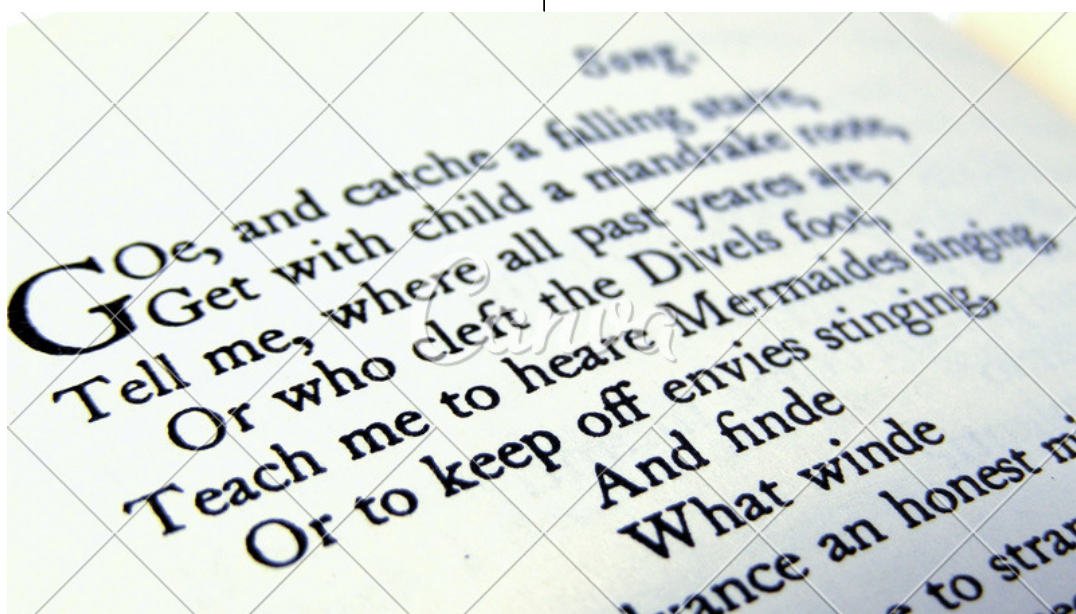 Song.
GOe, and catche a falling starre,
Get with child a mandrake roote,
Tell me, where all past yeares are,
Or who cleft the Divels foot,
Teach me to heare Mermaides singing,
Or to keep off envies stinging,
And finde
What winde
an honest
to
Canva